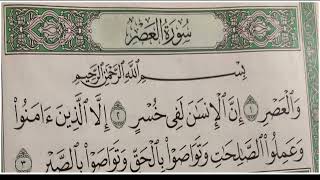 سُورَةُ العَصْرِ
بِسْمِ اللَّهِ الرَّحْمَٰنِ الرَّحِيمِ
وَٱلْعَصْرِ ١ إِنَّ ٱلْإِنسَٰنَ لَفِى خُسْرٍ ٢ إِلَّا ٱلَّذِينَ ءَامَنُوا۟
وَعَمِلُوا۟ ٱلصَّٰلِحَٰتِ وَتَوَاصَوْا۟ بِٱلْحَقِّ وَتَوَاصَوْا۟ بِٱلصَّبْرِ ٣